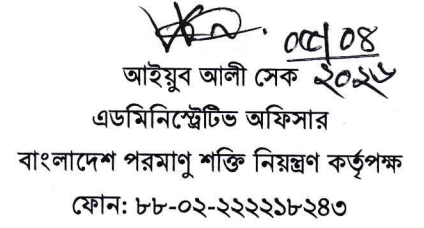 ০৫/০৪
আইয়ুব আলী সেক ২০২৬
এডমিনিস্ট্রেটিভ অফিসার
বাংলাদেশ পরমাণু শক্তি নিয়ন্ত্রণ কর্তৃপক্ষ
ফোন: ৮৮-০২-২২২২১৮২৪৩